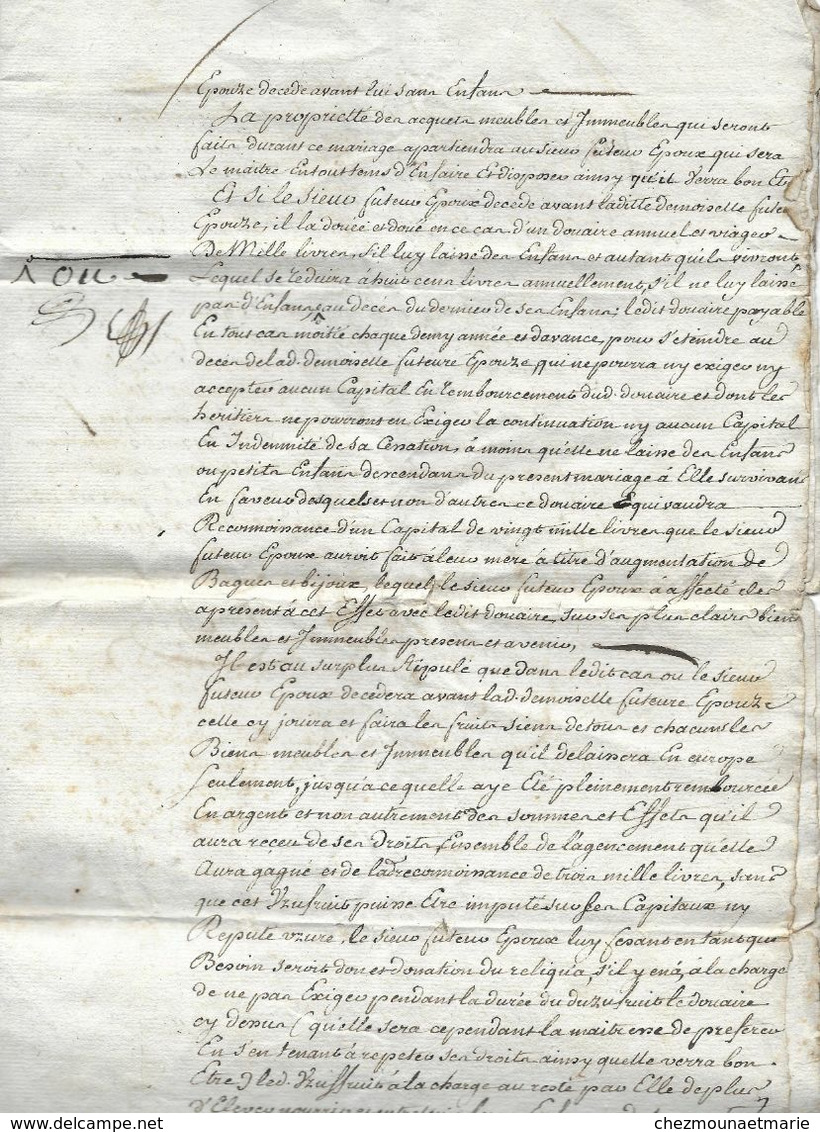 Epouze decede avant lui sans Enfans
La proprietté des acquets meubles et Immeubles qui seront
faits durant ce mariage apartiendra au sieur futeur Epoux qui sera
Le maitre En tout tems d'En faire Et disposer ainsy qu'il verra bon Et
Et si le sieur futeur Epoux decede avant laditte demoiselle future
Epouze, il la douée et doué en ce cas d'un douaire annuel et viager
De Mille livres, s'il luy laisse des Enfans et autant qu'ils vivront,
ou
Lequel se reduira à huit cens livres annuellement, s'il ne luy laisse
pas d'Enfans au decés du dernier de ses Enfans; ledit douaire payable
En tout cas moitié chaque demy année et davance, pour s'etendre au
decés de lad. demoiselle futeure Epouze, qui ne pourra ny exiger ny
accepter aucun Capital En rembourcement dud. douaire et dont les
heritiers ne pourront en Exiger la continuation ny aucun Capital
En Indemnité de sa Cessation, à moins qu'elle ne laisse des Enfans
ou petits Enfans descendans du present mariage à Elle survivans
En faveur desquels et non d'autres ce douaire Equivaudra
Reconnoissance d'un Capital de vingt mille livres que le sieur
futeur Epoux auroit fait à leur mere à titre d'augmentation de
Bagues et bijoux, lequel, le sieur futeur Epoux à affecté des
apresent à cet Effet avec ledit douaire, sur ses plus clairs biens
meubles et Immeubles presens et avenir,
Il est au surplus stipulé que dans ledit cas ou le sieur
futeur Epoux decedera avant lad. demoiselle futeure Epouze
celle cy jouira et faira les fruits siens de tous et chacuns les
Biens meubles et Immeubles qu'il delaissera En europe
seulement, jusqu'à ce quelle aye Eté pleinement rembourcée
En argent et non autrement des sommes et Effets qu'il
aura reçeu de ses droits, Ensemble de l'agencement qu'elle
Aura gagné et de lad reconnoissance de trois mille livres, sans
que cet Uzufruit puisse Etre imputé sur ses Capitaux ny
Repute vzure, le sieur futeur Epoux luy fesant en tant que
Besoin seroit don et donation du reliqua, s'il y en à, à la charge
de ne pas Exiger pendant la durée du d uzufruit le douaire
cy dessus (qu'elle sera cependant la maitresse de preferer
En s'en tenant à repeter ses droits ainsy quelle verra bon
Etre) led. Vzuffruit à la charge au reste par Elle de plus
chezmounaetmarie.com